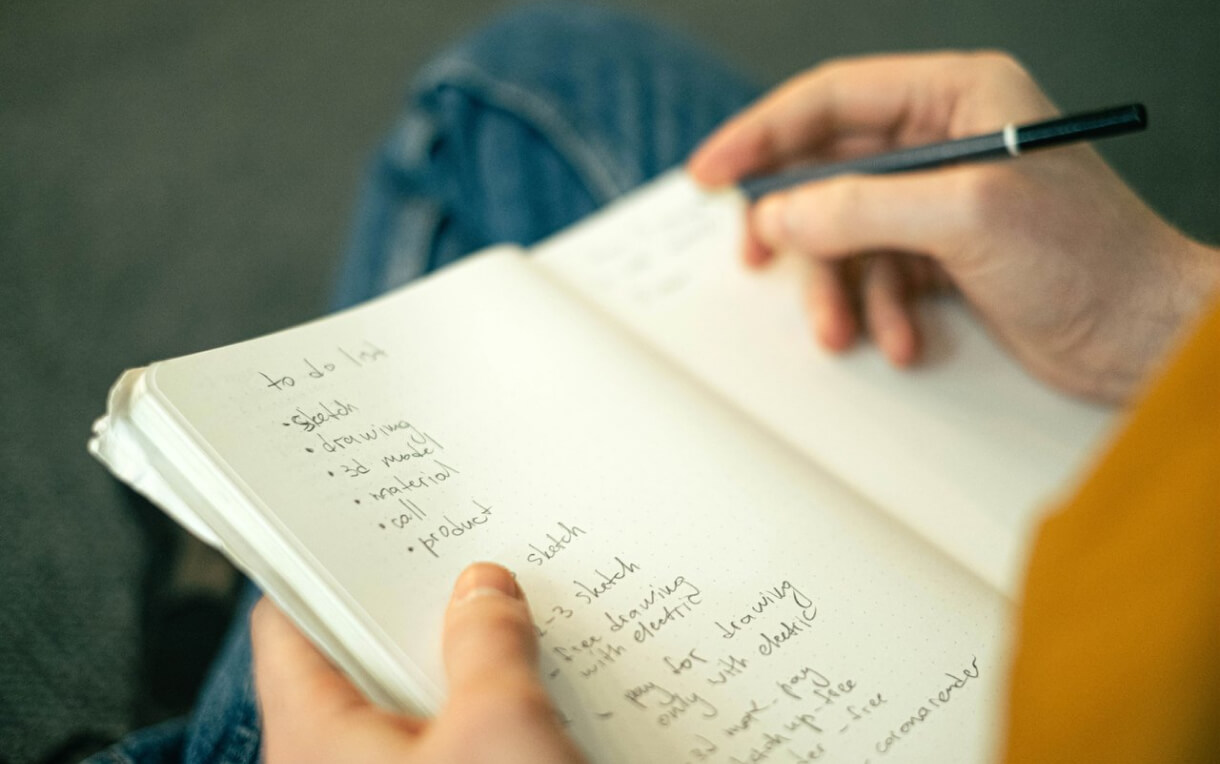 to do list
• sketch
• drawing
• 3d model
• material
• call
• product
sketch
-3 sketch
- free drawing
with electric
- pay for drawing
only with electric
3d more_pay
up_free
_free
corona render